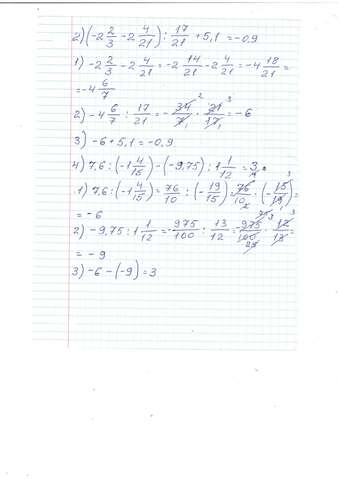 2) (-2 2/3 - 2 4/21) : 17/21 + 5,1 = -0,9
1) -2 2/3 - 2 4/21 = -2 14/21 - 2 4/21 = -4 18/21 =
= -4 6/7
2) -4 6/7 : 17/21 = - 34/7 · 21/17 = -6
3) -6 + 5,1 = -0,9
4) 7,6 : (-1 4/15) - (-9,75) : 1 1/12 = 3.
1) 7,6 : (-1 4/15) = 76/10 : (-19/15) = 76/10 · (-15/19) =
= -6
2) -9,75 : 1 1/12 = -975/100 : 13/12 = 975/100 · 12/13 =
= -9
3) -6 - (-9) = 3